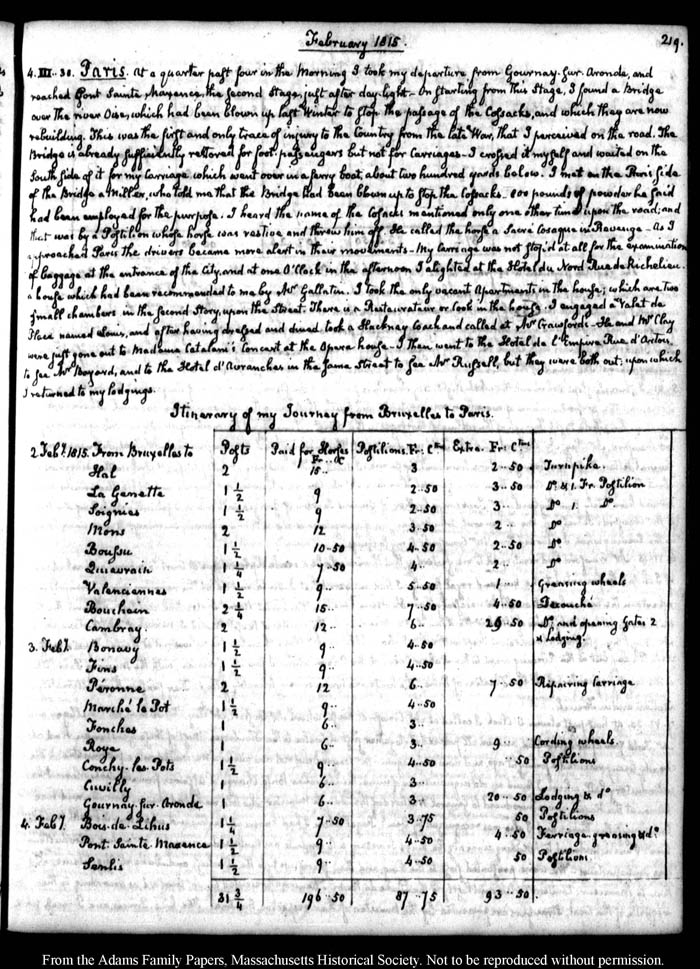 February 1815.
219.
4. III..30. Paris. At a quarter past four in the Morning I took my departure from Gournay-sur-Aronde, and
reached Pont Sainte Maxence, the second Stage, just after day-light—On starting from this Stage, I found a Bridge
over the river Oise, which had been blown up last Winter to stop the passage of the Cossacks, and which they are now
rebuilding. This was the first and only trace of injury to the Country from the late War, that I perceived on the road. The
Bridge is already sufficiently restored for foot-passengers but not for Carriages. I crossed it myself and waited on the
South side of it for my carriage which went over in a ferry boat, about two hundred yards below. I met on the Paris side
of the Bridge a Miller, who told me that the Bridge had been blown up to stop the Cossacks. 800 pounds of powder he said
had been employed for the purpose. I heard the name of the Cossacks mentioned only one other time upon the road; and
that was by a Postilion whose horse was restive and threw him off. He called the horse a Sacré Cosaque in Revenge—As I
approached Paris the drivers became more alert in their movements—My carriage was not stop'd at all for the examination
of baggage at the entrance of the City, and at one O'Clock in the afternoon I alighted at the Hotel du Nord Rue de Richelieu.
a house which had been recommended to me by Mr. Gallatin. I took the only vacant Apartments in the house; which are two
small chambers in the second Story, upon the Street. There is a Restaurateur or Cook in the house. I engaged a Valet de
Place named Louis, and after having dressed and dined, took a Hackney Coach and called at Mr Crawford's. He and Mr Clay
were just gone out to Madame Catalani's Concert at the Opera house. I then went to the Hotel de l'Empire Rue d'Artois,
to see Mr Boyard, and to the Hotel d'Avranches in the same Street to see Mr Russell, but they were both out; upon which
I returned to my lodgings.
Itinerary of my Journey from Bruxelles to Paris.
2 Feby. 1815. From Bruxelles to Posts Paid for Horses Fr.. C Postilions. Fr: Cms Extra. Fr: Cms
Hal 2 15.. 3 2..50 Turnpike.
La Genette 1 1/2 9 2..50 3..50 Do & 1. Fr. Postilion
Soignies 1 1/2 9 2..50 3.. Do 1. Do
Mons 2 12 3..50 2.. Do
Boussu 1 1/2 10..50 4..50 2..50 Do
Quievrain 1 1/4 7..50 4.. 2.. Do
Valenciennes 1 1/2 9.. 5..50 1 Greasing wheels
Bouchain 2 1/4 15.. 7..50 4..50 Debouché
Cambray 2 12.. 6.. 29..50 Do, and opening Gates 2
& Lodging.
3. Feby. Bonavy 1 1/2 9.. 4..50
Fins 1 1/2 9.. 4..50
Péronne 2 12 6.. 7..50 Repairing Carriage
Marché le Pot 1 1/2 9.. 4..50
Fonches 1 6.. 3..
Roye 1 6.. 3.. 9.. Cording wheels.
Conchy-les-Pots 1 1/2 9.. 4..50 50 Postilions
Cuvilly 1 6.. 3..
Gournay-sur-Aronde 1 6.. 3.. 20..50 Lodging & do
4. Feby. Bois-de-Lihus 1 1/4 7..50 3..75 50 Postilions
Pont Sainte Maxence 1 1/2 9.. 4..50 4..50 Ferriage greasing & do.
Senlis 1 1/2 9.. 4..50 50 Postilions
31 3/4 196..50 87..75 93..50
From the Adams Family Papers, Massachusetts Historical Society. Not to be reproduced without permission.